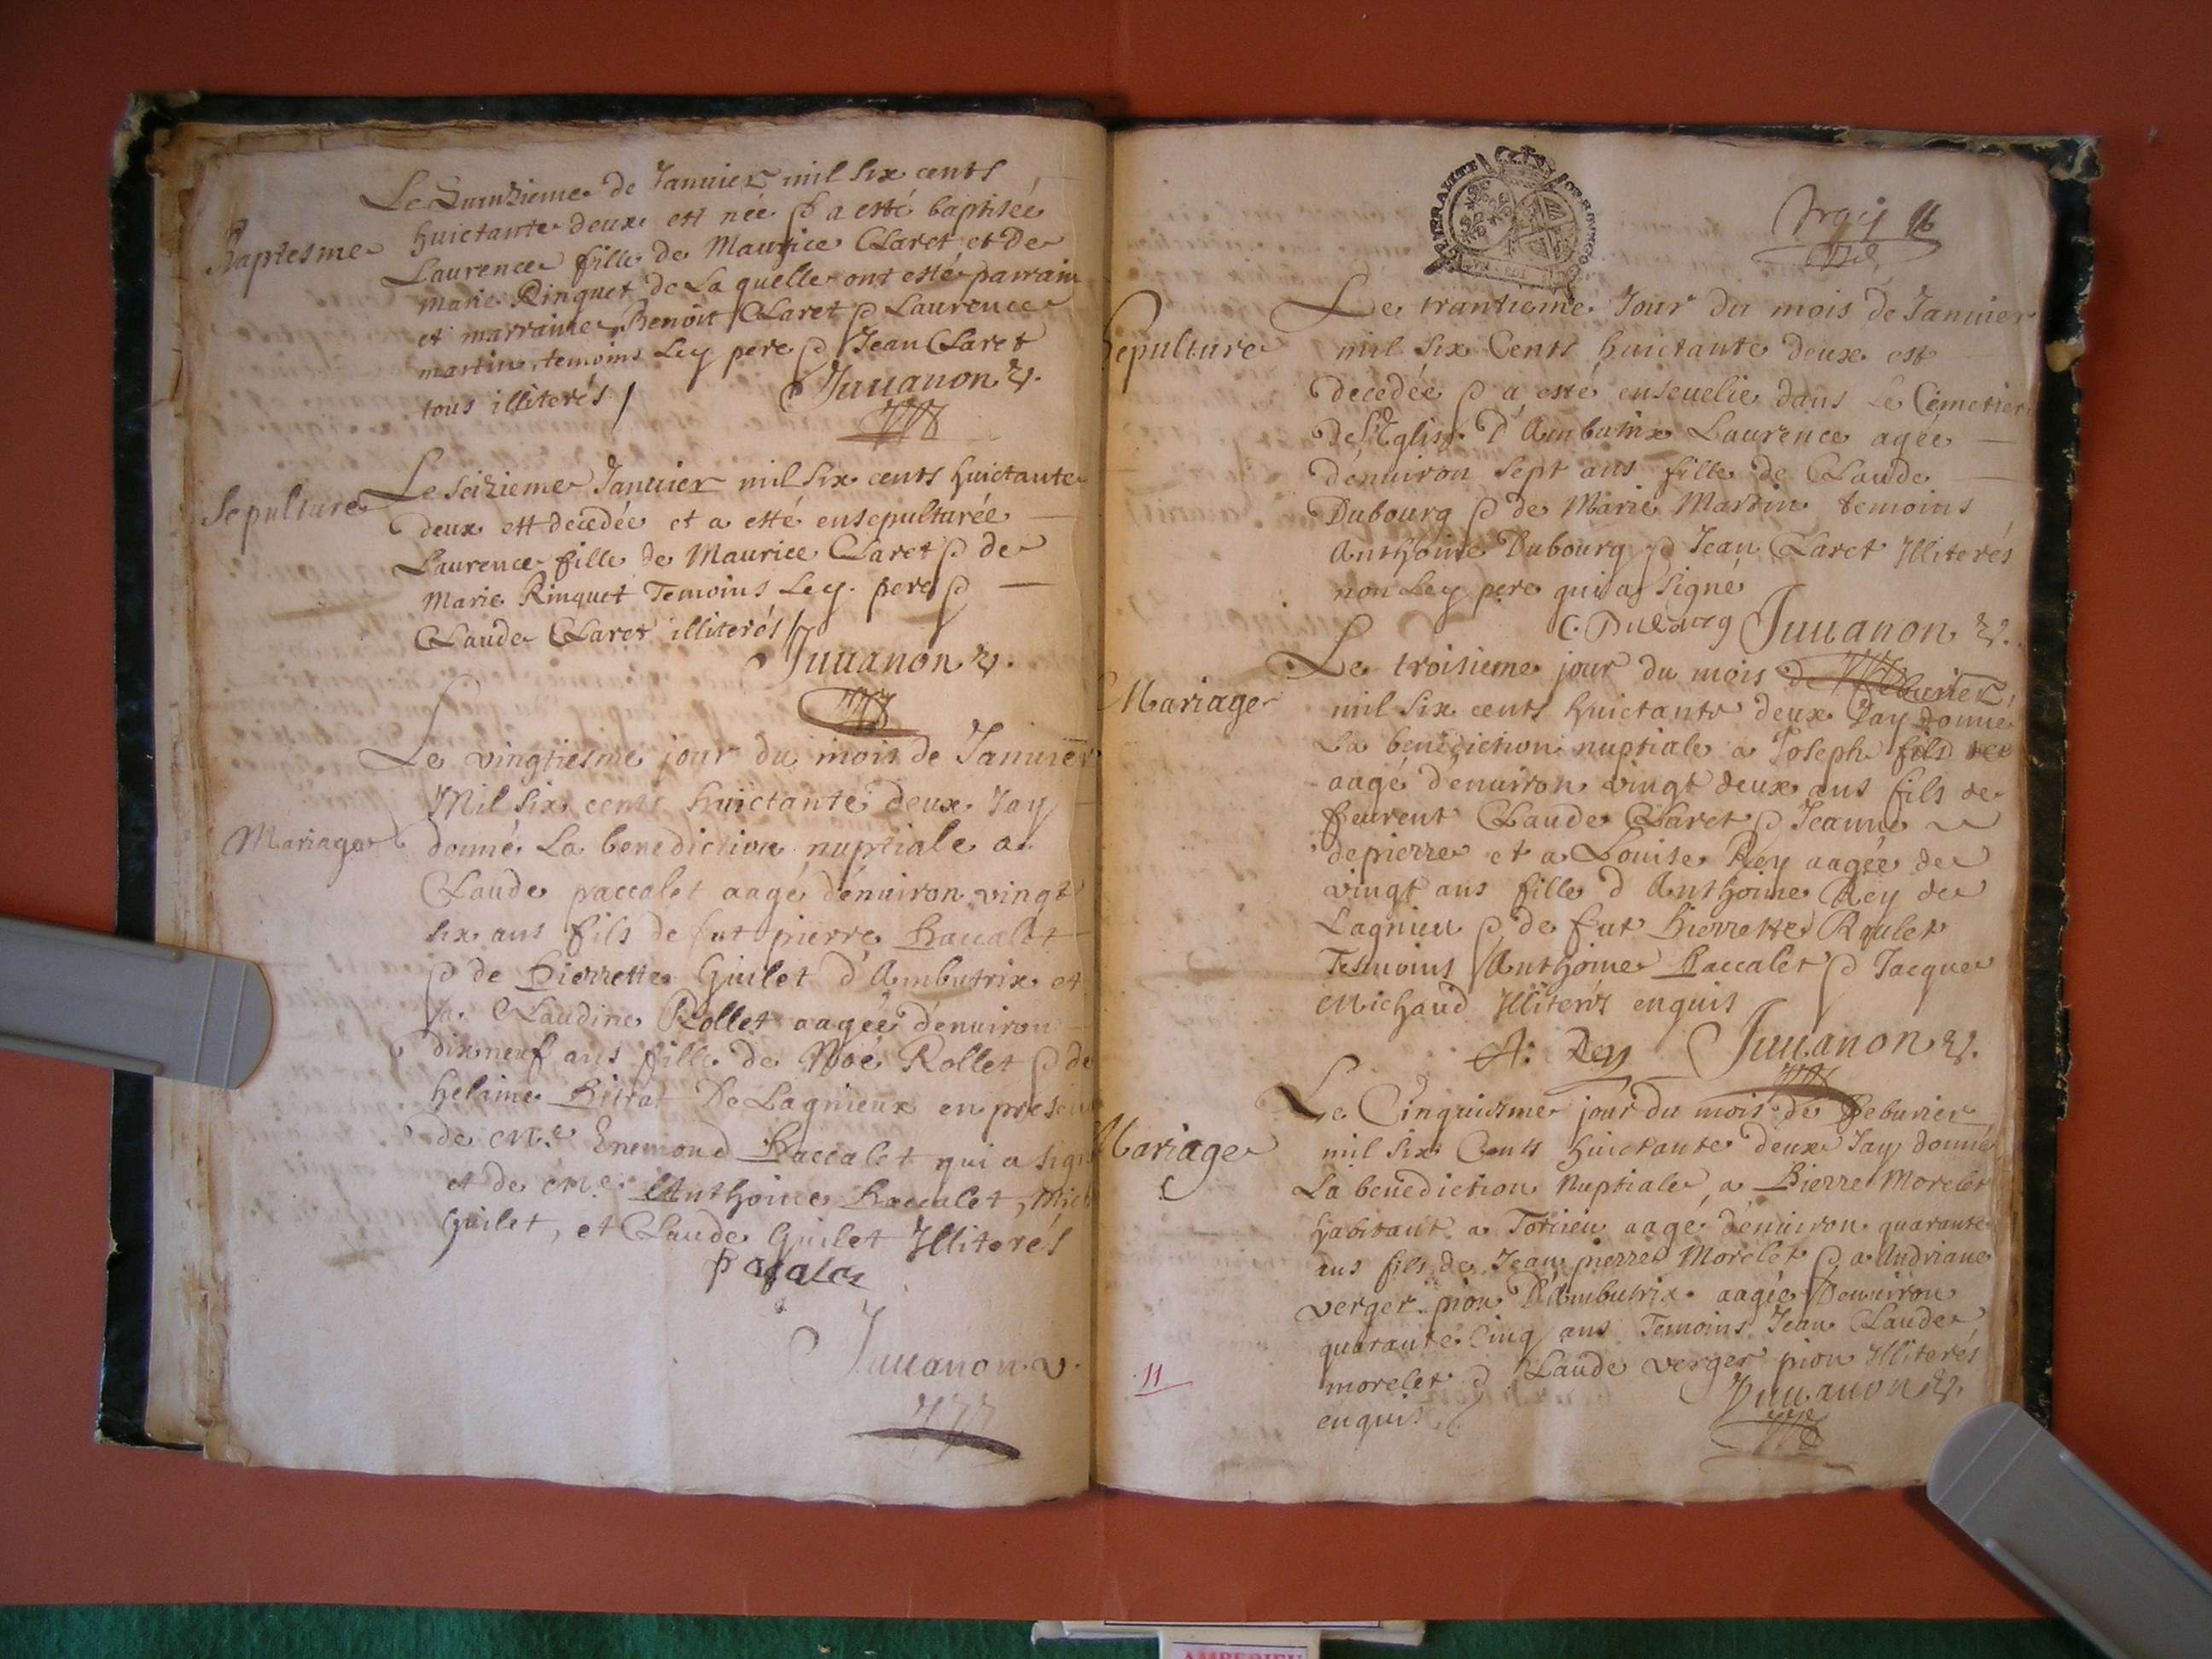 Baptesme
Le Quinzieme de Januier mil six cents
huictante deux est née & a esté baptisée
Laurence fille de Maurice Claret et de
marie Rinquet de Laquelle ont esté parrain
et marraine Benoit Claret & Laurence
martin, temoins Ley pere & Jean Claret
tous illiterés /
Juuanon v.
Sepulture
Le seizieme Januier mil six cents huictante
deux est decedée et a esté ensepulturée
Laurence fille de Maurice Claret & de
Marie Rinquet Temoins Ley. pere &
Claude Claret illiterés /
Juuanon v.
Mariage
Le vingtiesme jour du mois de Januier
Mil six cents huictante deux Jay
donné La benediction nuptiale a
Claude paccalet aagé d'enuiron vingt
six ans fils de fut pierre Paccalet
& de Pierrette Guilet d'Ambutrix et
a Claudine Rollet aagée d'enuiron
dixneuf ans fille de Noé Rollet & de
helaine De Lagnieux en
de Me Enemond Paccalet qui a
et de Me Anthoine Paccalet,
Guilet, et Claude Guilet Illiterés
Juuanon v.
16
GENERALITE
Sepulture
Le trantieme Jour du mois de Januier
mil six Cents huictante deux est
decedée & a esté enseuelie dans Le Cemetiere
de l'Eglise D'Ambutrix Laurence agée
d'enuiron sept ans fille de Claude
Dubourg & de Marie Martin temoins
Anthoine Dubourg & Jean Claret Illiterés
non Ley pere qui a signé
C. Dubourg Juuanon v.
Mariage
Le troisieme jour du mois de Feburier
mil six cents huictante deux Jay donné
La benediction nuptiale a Joseph fils de
aagé d'enuiron vingt deux ans fils de
feurent Claude Claret & Jeanne
depierre et a Louise Rey aagée de
vingt ans fille d'Anthoine Rey de
Lagnieu & de fut Pierrette Roulet
Tesmoins Anthoine Paccalet & Jacque
Michaud Illiterés enquis
A. Rey Juuanon v.
Mariage
Le Cinquiesme jour du mois de Feburier
mil six Cents huictante deux Jay donné
La benediction Nuptiale, a Pierre Morelet
habitant a Torcieu aagé d'enuiron quarante
ans fils de Jean pierre Morelet & a Andriane
verger pion D'Ambutrix aagée D'enuiron
quarante Cinq ans Temoins Jean Claude
morelet & Claude verger pion Illiterés
enquis
Juuanon v.
11